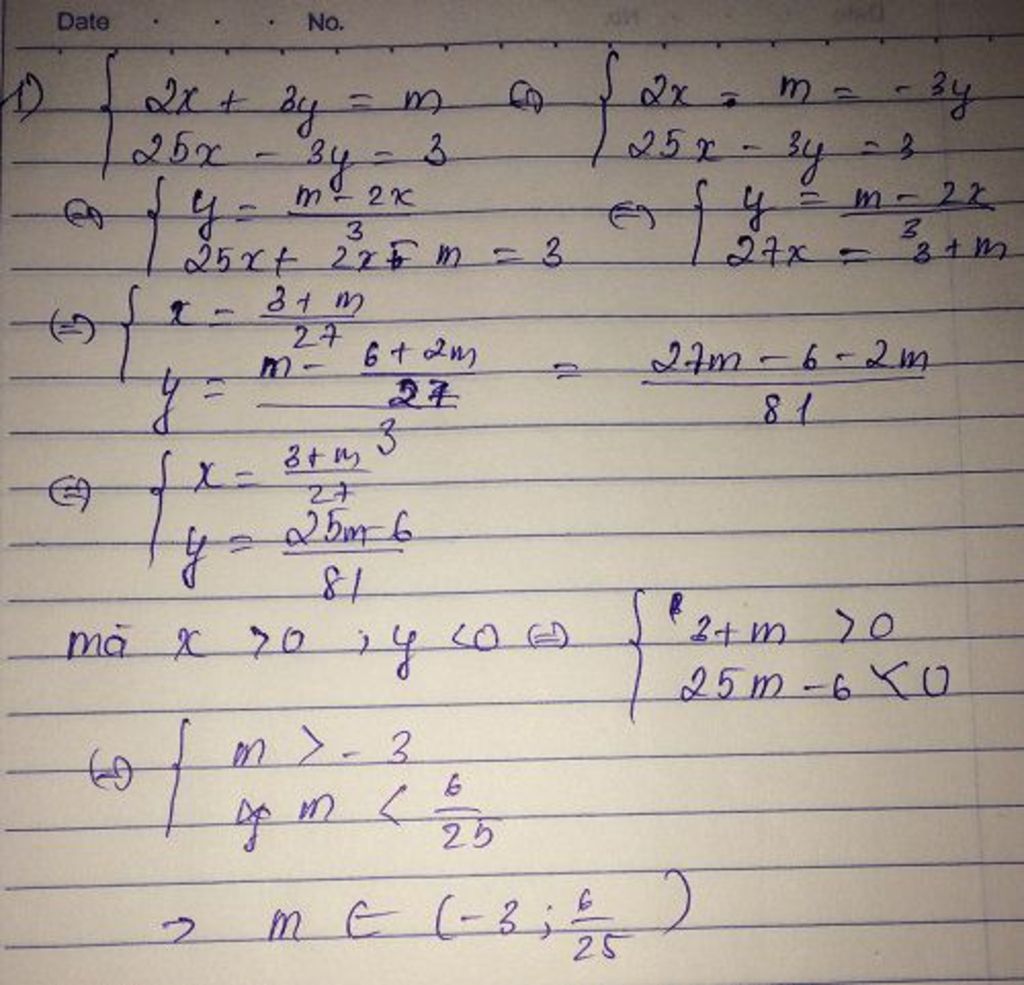 Date . . . No.
1) { 2x + 3y = m ⇔ { 2x = m = - 3y
25x - 3y = 3 25x - 3y = 3
⇔ { y = (m - 2x)/3 ⇔ { y = (m - 2x)/3
25x + 2x - m = 3 27x = 3 + m
⇔ { x = (3 + m)/27
y = (m - (6 + 2m)/27)/3 = (27m - 6 - 2m)/81
⇔ { x = (3 + m)/27
y = (25m - 6)/81
mà x > 0 ; y < 0 ⇔ { 3 + m > 0
25m - 6 < 0
⇔ { m > - 3
m < 6/25
→ m ∈ (-3 ; 6/25)